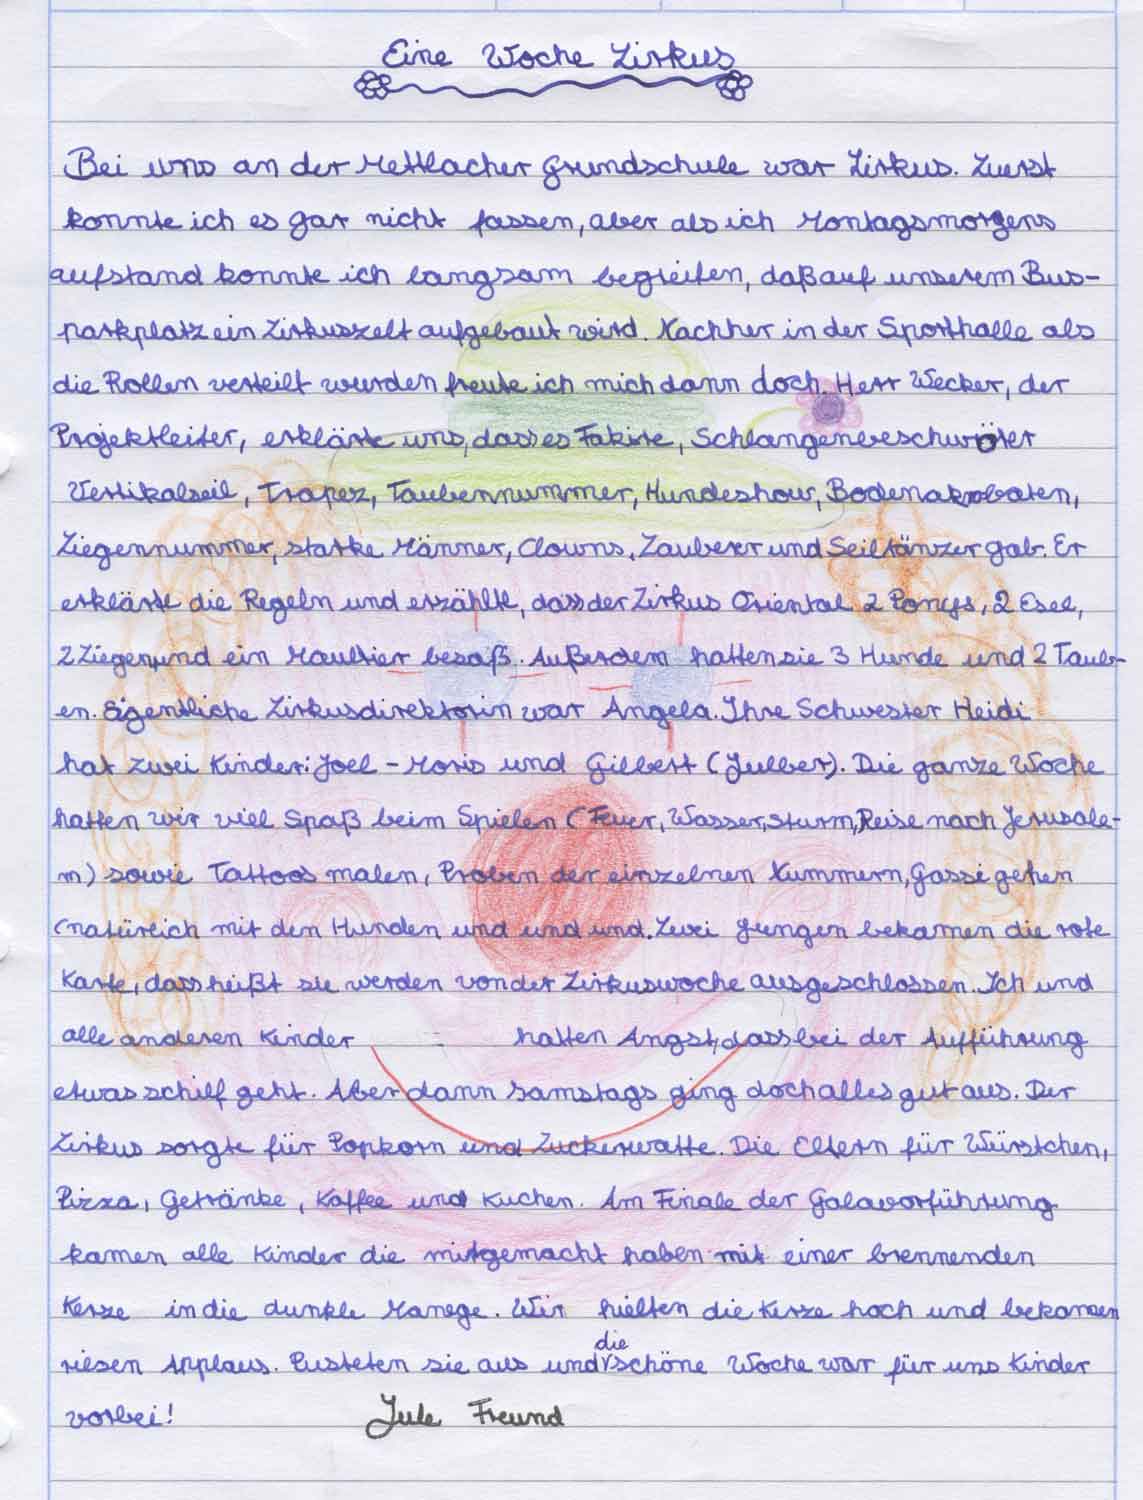 Eine Woche Zirkus
Bei uns an der Mettlacher Grundschule war Zirkus. Zuerst
konnte ich es gar nicht fassen, aber als ich Montagsmorgens
aufstand konnte ich langsam begreifen, daß auf unserem Bus-
parkplatz ein Zirkuszelt aufgebaut wird. Nachher in der Sporthalle als
die Rollen verteilt wurden freute ich mich dann doch. Herr Wecker, der
Projektleiter, erklärte uns, dass es Fakire, Schlangenbeschwörer
Vertikalseil, Trapez, Taubennummer, Hundeshow, Bodenakrobaten,
Ziegennummer, starke Männer, Clowns, Zauberer und Seiltänzer gab. Er
erklärte die Regeln und erzählte, dass der Zirkus Oriental 2 Ponys, 2 Esel,
2 Ziegen, und ein Maultier besaß. Außerdem hatten sie 3 Hunde und 2 Taub-
en. Eigentliche Zirkusdirektorin war Angela. Ihre Schwester Heidi
hat zwei Kinder: Joel - Moris und Gilbert (Julber). Die ganze Woche
hatten wir viel Spaß beim Spielen (Feuer, Wasser, Sturm, Reise nach Jerusale-
m) sowie Tattoos malen, Proben der einzelnen Nummern, Gassi gehen
(natürlich mit den Hunden und und und. Zwei Jungen bekamen die rote
Karte, dass heißt sie werden von der Zirkuswoche ausgeschlossen. Ich und
alle anderen Kinder hatten Angst, dass bei der Aufführung
etwas schief geht. Aber dann Samstags ging doch alles gut aus. Der
Zirkus sorgte für Popkorn und Zuckerwatte. Die Eltern für Würstchen,
Pizza, Getränke, Kaffee und Kuchen. Am Finale der Galavorführung
kamen alle Kinder die mitgemacht haben mit einer brennenden
Kerze in die dunkle Manege. Wir hielten die Kerze hoch und bekamen
riesen Applaus. Pusteten sie aus und die schöne Woche war für uns Kinder
vorbei! Jule Freund